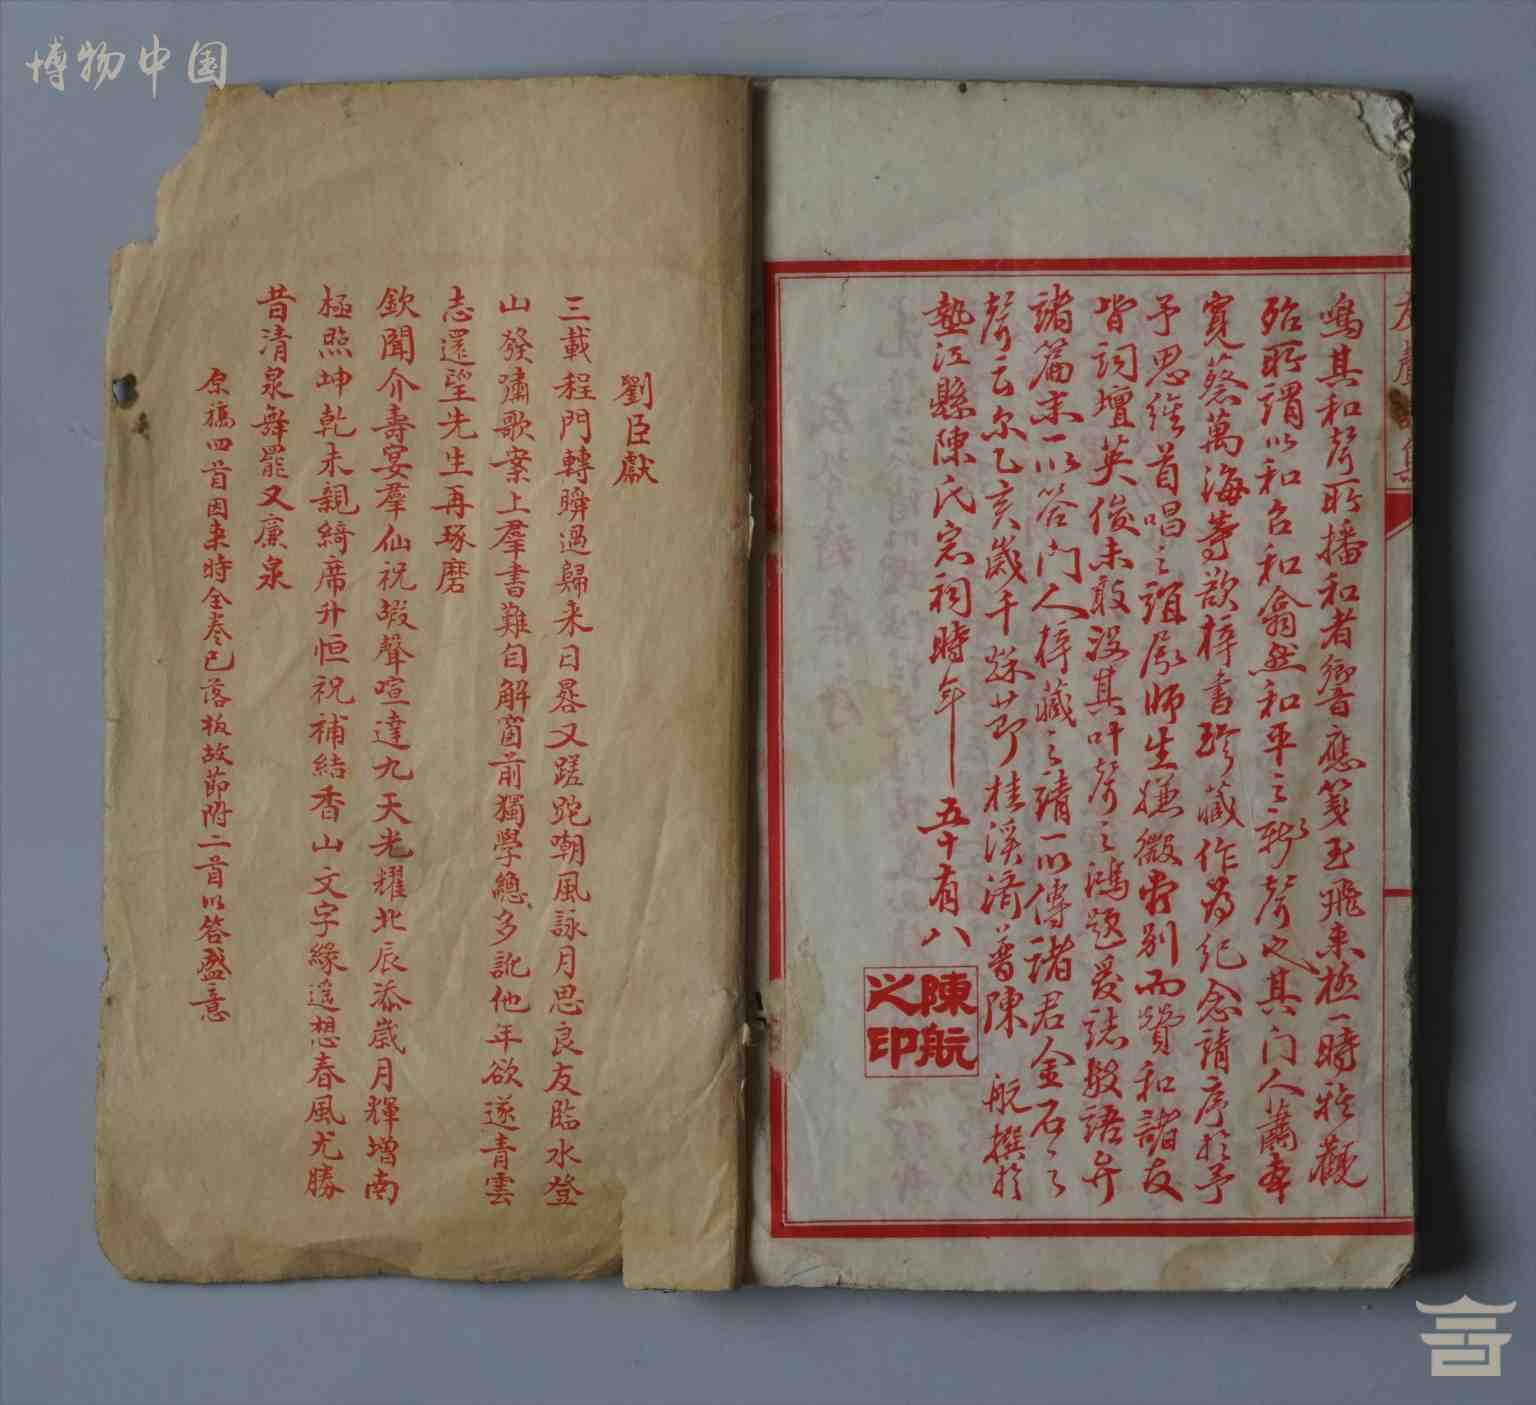 博物中国
友聲詩集
鳴其和聲所播和者響應箋玉飛來極一時雅觀
殆所謂以和召和翕然和平之新聲也其門人蕭奉
寬蔡萬海等欲梓書珍藏作為紀念請序於予
予思維首唱之頭屬師生嫌微當別而贊和諸友
皆詞壇英俊未敢沒其叶聲之鴻題爰誌數語弁
諸篇末一以答門人梓藏之請一以傳諸君金石之
聲云尔乙亥歲千秋節桂溪濟普陳航撰於
墊江縣陳氏宗祠時年五十有八
陳航之印
劉臣獻
三載程門轉瞬過歸來日晷又蹉跎嘲風詠月思良友臨水登
山發嘯歌案上羣書難自解窗前獨學總多訛他年欲遂青雲
志還望先生再琢磨
欽聞介壽宴羣仙祝嘏聲喧達九天光耀北辰添歲月輝增南
極照坤乾未親綺席升恒祝補結香山文字緣遥想春風尤勝
昔清泉舞罷又廉泉
原稿四首因來時全卷已落板故節附二首以答盛意